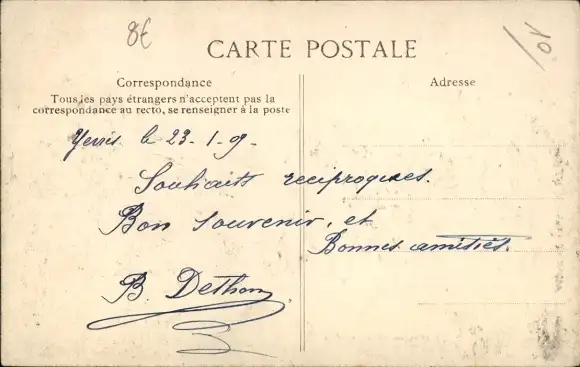 8€
01
CARTE POSTALE
Correspondance
Tous les pays étrangers n'acceptent pas la
correspondance au recto, se renseigner à la poste
Adresse
Yerris le 23-1-9-
Souhaits reciproques.
Bon souvenir, et
Bonnes amitiés.
B. Dethom